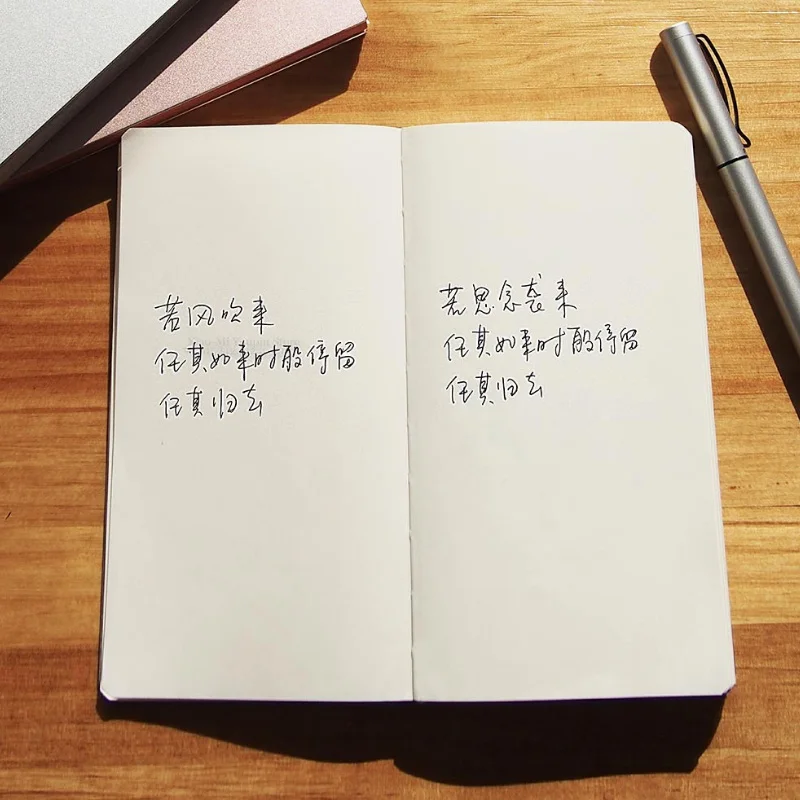 若风吹来
任其如来时般停留
任其归去
若思念袭来
任其如来时般停留
任其归去